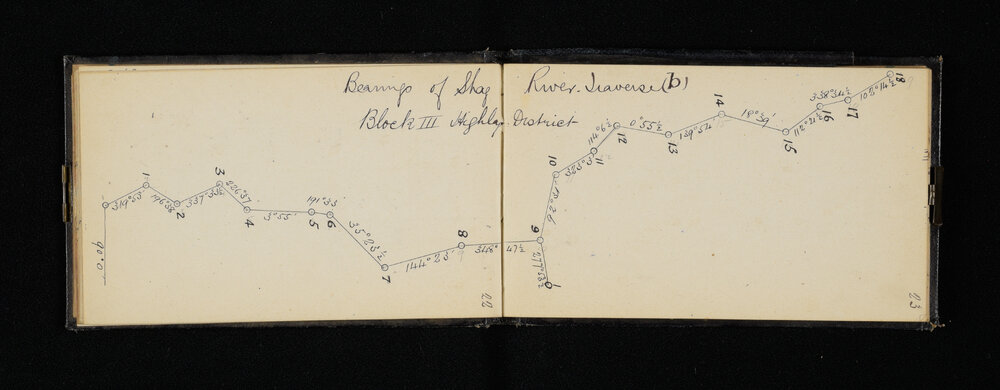 Bearings of Shag River Traverse (b)
Block III Highlay District
90°0'
319°53'
1
196°38
2
337°33½
3
226°37
4
3°55'
5
191°33
6
35°23½
7
144°23'
8
348° 47½
9
277°53½
10
11
114°6½
12
0°55½
13
139°54
14
18°39'
15
112°21½
16
338°34½
17
103°14½
18
22
23